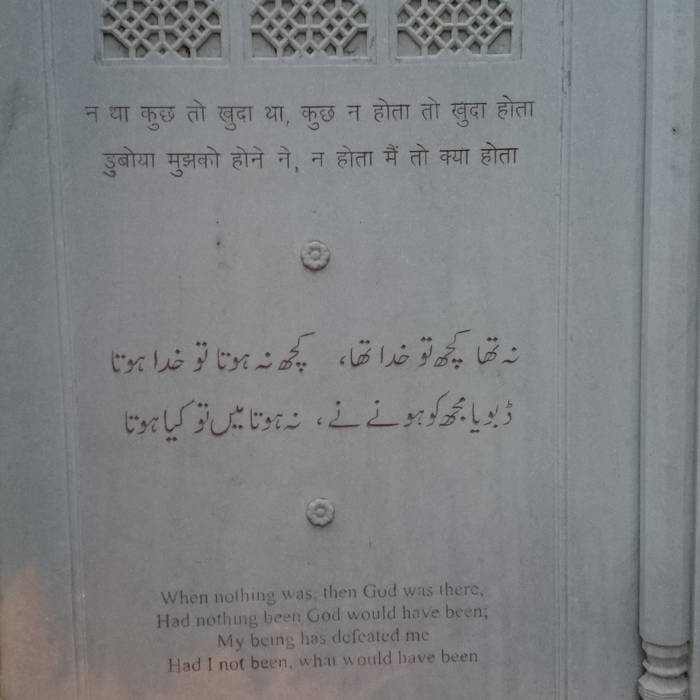 न था कुछ तो खुदा था, कुछ न होता तो खुदा होता
डुबोया मुझको होने ने, न होता मैं तो क्या होता
نہ تھا کچھ تو خدا تھا، کچھ نہ ہوتا تو خدا ہوتا
ڈبویا مجھ کو ہونے نے، نہ ہوتا میں تو کیا ہوتا
When nothing was, then God was there,
Had nothing been God would have been;
My being has defeated me
Had I not been, what would have been